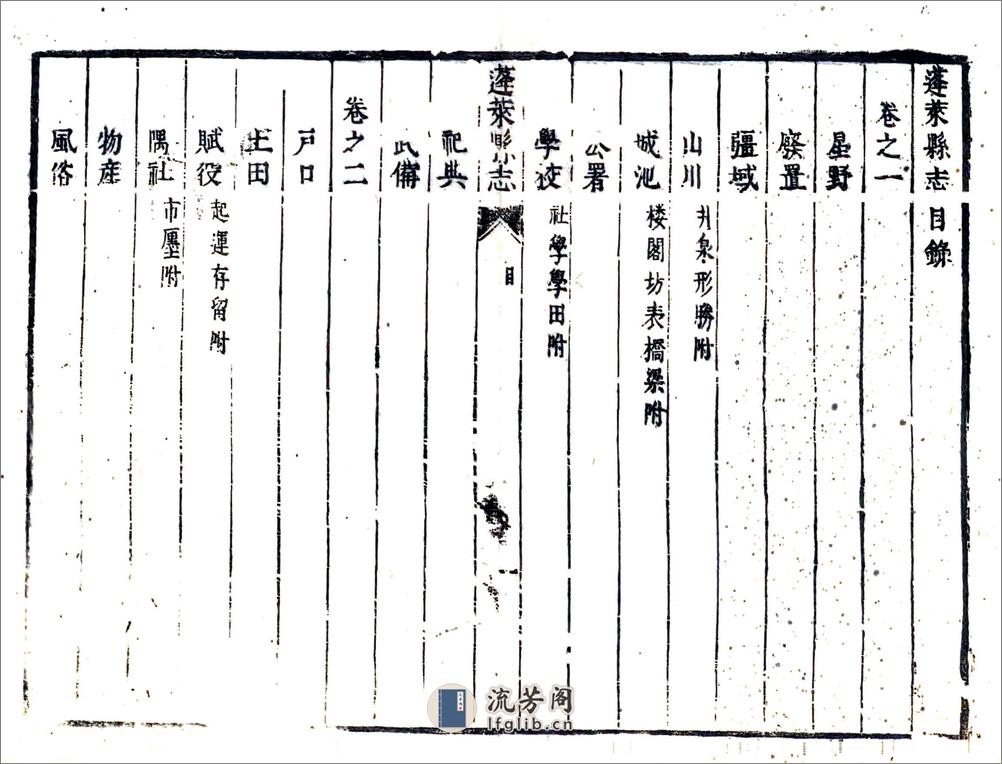 蓬萊縣志目錄
卷之一
星野
廢置
疆域
山川 井泉形勝附
城池 楼閣坊表橋梁附
公署
學校 社學學田附
祀典
蓬萊縣志 目 一
武備
卷之二
戶口
土田
賦役 起運存留附
隅社 市廛附
物產
風俗
流芳阁
lfglib.cn